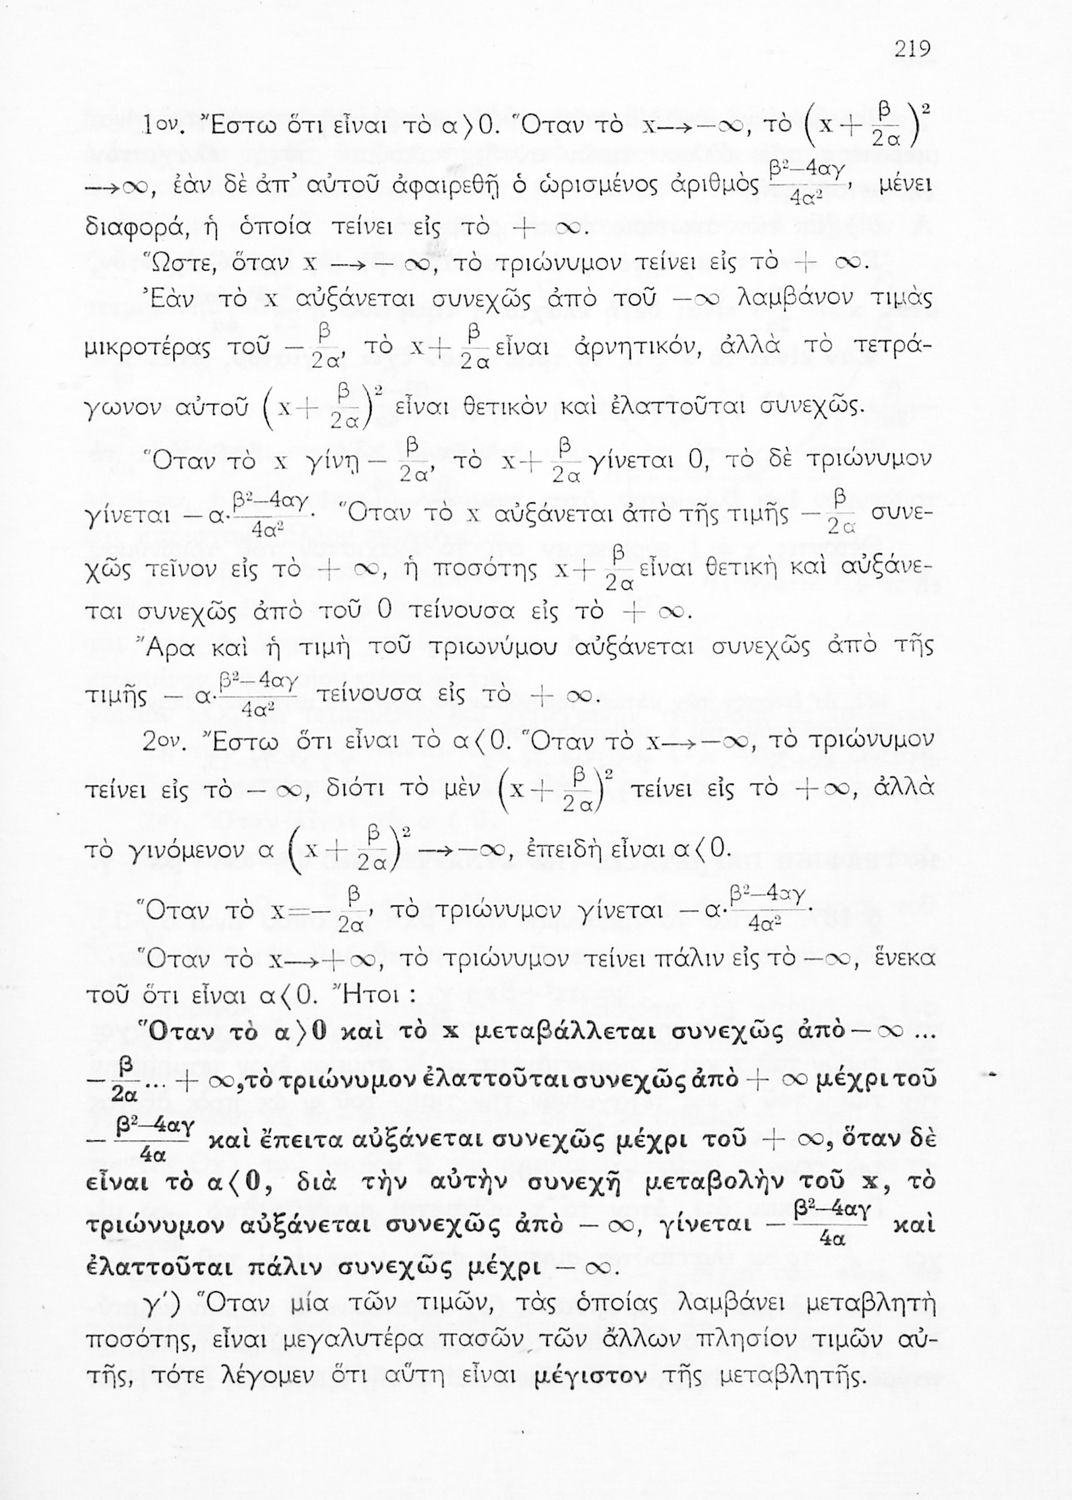 219
1ον. Ἔστω ὅτι εἶναι τὸ α⟩0. Ὅταν τὸ x⟶—∞, τὸ (x + β/2α)²
⟶∞, ἐὰν δὲ ἀπ’ αὐτοῦ ἀφαιρεθῇ ὁ ὡρισμένος ἀριθμὸς β²—4αγ/4α², μένει
διαφορά, ἡ ὁποία τείνει εἰς τὸ + ∞.
Ὥστε, ὅταν x ⟶ — ∞, τὸ τριώνυμον τείνει εἰς τὸ + ∞.
Ἐὰν τὸ x αὐξάνεται συνεχῶς ἀπὸ τοῦ —∞ λαμβάνον τιμὰς
μικροτέρας τοῦ — β/2α, τὸ x + β/2α εἶναι ἀρνητικόν, ἀλλὰ τὸ τετρά-
γωνον αὐτοῦ (x + β/2α)² εἶναι θετικὸν καὶ ἐλαττοῦται συνεχῶς.
Ὅταν τὸ x γίνῃ — β/2α, τὸ x + β/2α γίνεται 0, τὸ δὲ τριώνυμον
γίνεται — α·β²—4αγ/4α². Ὅταν τὸ x αὐξάνεται ἀπὸ τῆς τιμῆς — β/2α συνε-
χῶς τεῖνον εἰς τὸ + ∞, ἡ ποσότης x + β/2α εἶναι θετικὴ καὶ αὐξάνε-
ται συνεχῶς ἀπὸ τοῦ 0 τείνουσα εἰς τὸ + ∞.
Ἄρα καὶ ἡ τιμὴ τοῦ τριωνύμου αὐξάνεται συνεχῶς ἀπὸ τῆς
τιμῆς — α·β²—4αγ/4α² τείνουσα εἰς τὸ + ∞.
2ον. Ἔστω ὅτι εἶναι τὸ α⟨0. Ὅταν τὸ x⟶—∞, τὸ τριώνυμον
τείνει εἰς τὸ — ∞, διότι τὸ μὲν (x + β/2α)² τείνει εἰς τὸ +∞, ἀλλὰ
τὸ γινόμενον α (x + β/2α)² ⟶—∞, ἐπειδὴ εἶναι α⟨0.
Ὅταν τὸ x=— β/2α, τὸ τριώνυμον γίνεται — α·β²—4αγ/4α².
Ὅταν τὸ x⟶+∞, τὸ τριώνυμον τείνει πάλιν εἰς τὸ —∞, ἕνεκα
τοῦ ὅτι εἶναι α⟨0. Ἤτοι :
Ὅταν τὸ α⟩0 καὶ τὸ x μεταβάλλεται συνεχῶς ἀπὸ — ∞ ...
— β/2α ... + ∞, τὸ τριώνυμον ἐλαττοῦται συνεχῶς ἀπὸ + ∞ μέχρι τοῦ
— β²—4αγ/4α καὶ ἔπειτα αὐξάνεται συνεχῶς μέχρι τοῦ + ∞, ὅταν δὲ
εἶναι τὸ α⟨0, διὰ τὴν αὐτὴν συνεχῆ μεταβολὴν τοῦ x, τὸ
τριώνυμον αὐξάνεται συνεχῶς ἀπὸ — ∞, γίνεται — β²—4αγ/4α καὶ
ἐλαττοῦται πάλιν συνεχῶς μέχρι — ∞.
γ′) Ὅταν μία τῶν τιμῶν, τὰς ὁποίας λαμβάνει μεταβλητὴ
ποσότης, εἶναι μεγαλυτέρα πασῶν τῶν ἄλλων πλησίον τιμῶν αὐ-
τῆς, τότε λέγομεν ὅτι αὕτη εἶναι μέγιστον τῆς μεταβλητῆς.